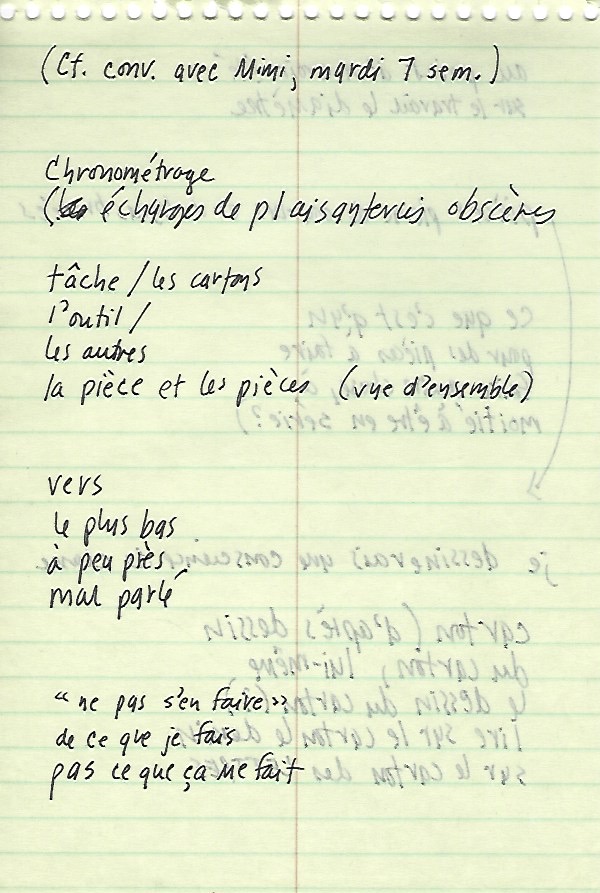 (Cf. conv. avec Mimi, mardi 7 sem.)
Chronométrage
(les échanges de plaisanteries obscènes
tâche / les cartons
l'outil /
les autres
la pièce et les pièces (vue d'ensemble)
vers
le plus bas
à peu près
mal parlé
“ne pas s'en faire”
de ce que je fais
pas ce que ça me fait